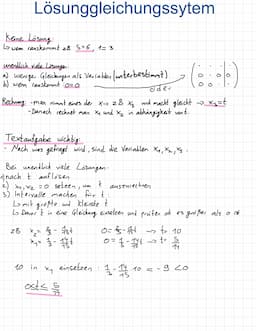 Lösunggleichungssytem
Keine Lösung:
↳ wenn rauskommt zB 5=6, 1=3
unentlich viele Lösungen
a) wenige Gleichungen als Variablen (unterbestimmt)
b) wenn rauskommt 0=0
oder
Rechnung: - man nimmt eines der x → zB x₃ und macht gleich → x₃=t
- Danach rechnet man x₁ und x₂ in abhängigkeit von t.
Textaufgabe wichtig:
- Nach was gefragt wird, sind die Variablen x₁, x₂, x₃.
Bei unentlich viele Lösungen:
nach t auflösen
x₁, x₂ = 0 setzen, um t auszurechnen
3) Intervalle machen für t.
↳ mit größte und kleinste t
↳ Dann t in eine Gleichung einsetzen und prüfen ob es größer als 0 ist
10 in x₁ einsetzen: